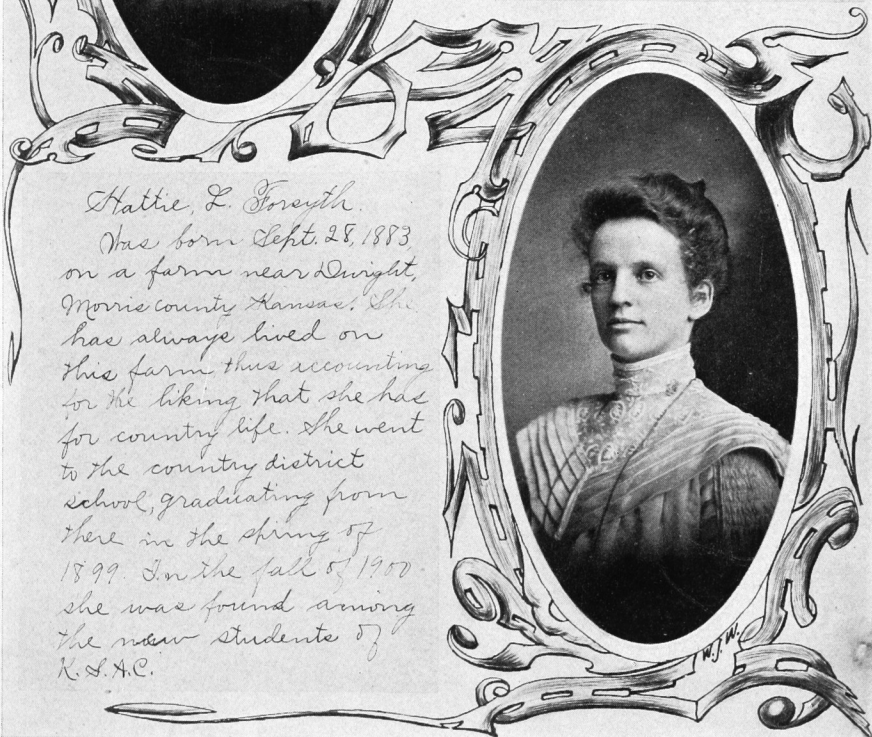 Hattie, L. Forsyth.
Was born Sept. 28, 1883,
on a farm near Dwight,
Morris county Kansas. She
has always lived on
this farm thus accounting
for the liking that she has
for country life. She went
to the country district
school, graduating from
there in the spring of
1899. In the fall of 1900
she was found among
the new students of
K.S.A.C.
W.J.W.